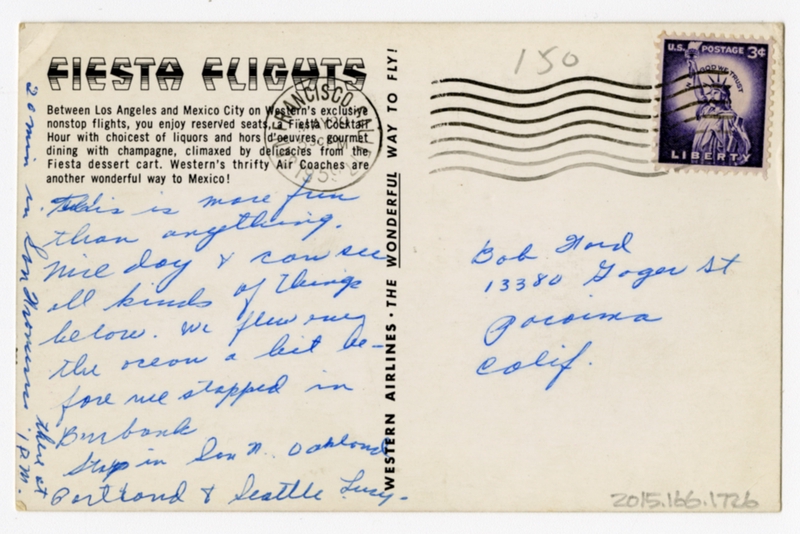 FIESTA FLIGHTS
Between Los Angeles and Mexico City on Western's exclusive
nonstop flights, you enjoy reserved seats, a Fiesta Cocktail
Hour with choicest of liquors and hors d'oeuvres, gourmet
dining with champagne, climaxed by delicacies from the
Fiesta dessert cart. Western's thrifty Air Coaches are
another wonderful way to Mexico!
This is more fun
than anything.
Nice day & can see
all kinds of things
below. We flew over
the ocean a bit be-
fore we stopped in
Burbank
Stop in San Oakland
Portland & Seattle Lucy-
20 min in San
there at 1 P.M.
WESTERN AIRLINES • THE WONDERFUL WAY TO FLY!
FRANCISCO
150
U.S. POSTAGE 3¢
IN GOD WE TRUST
LIBERTY
Bob
13380 St
Pacoima
Calif.
2015.166.1726